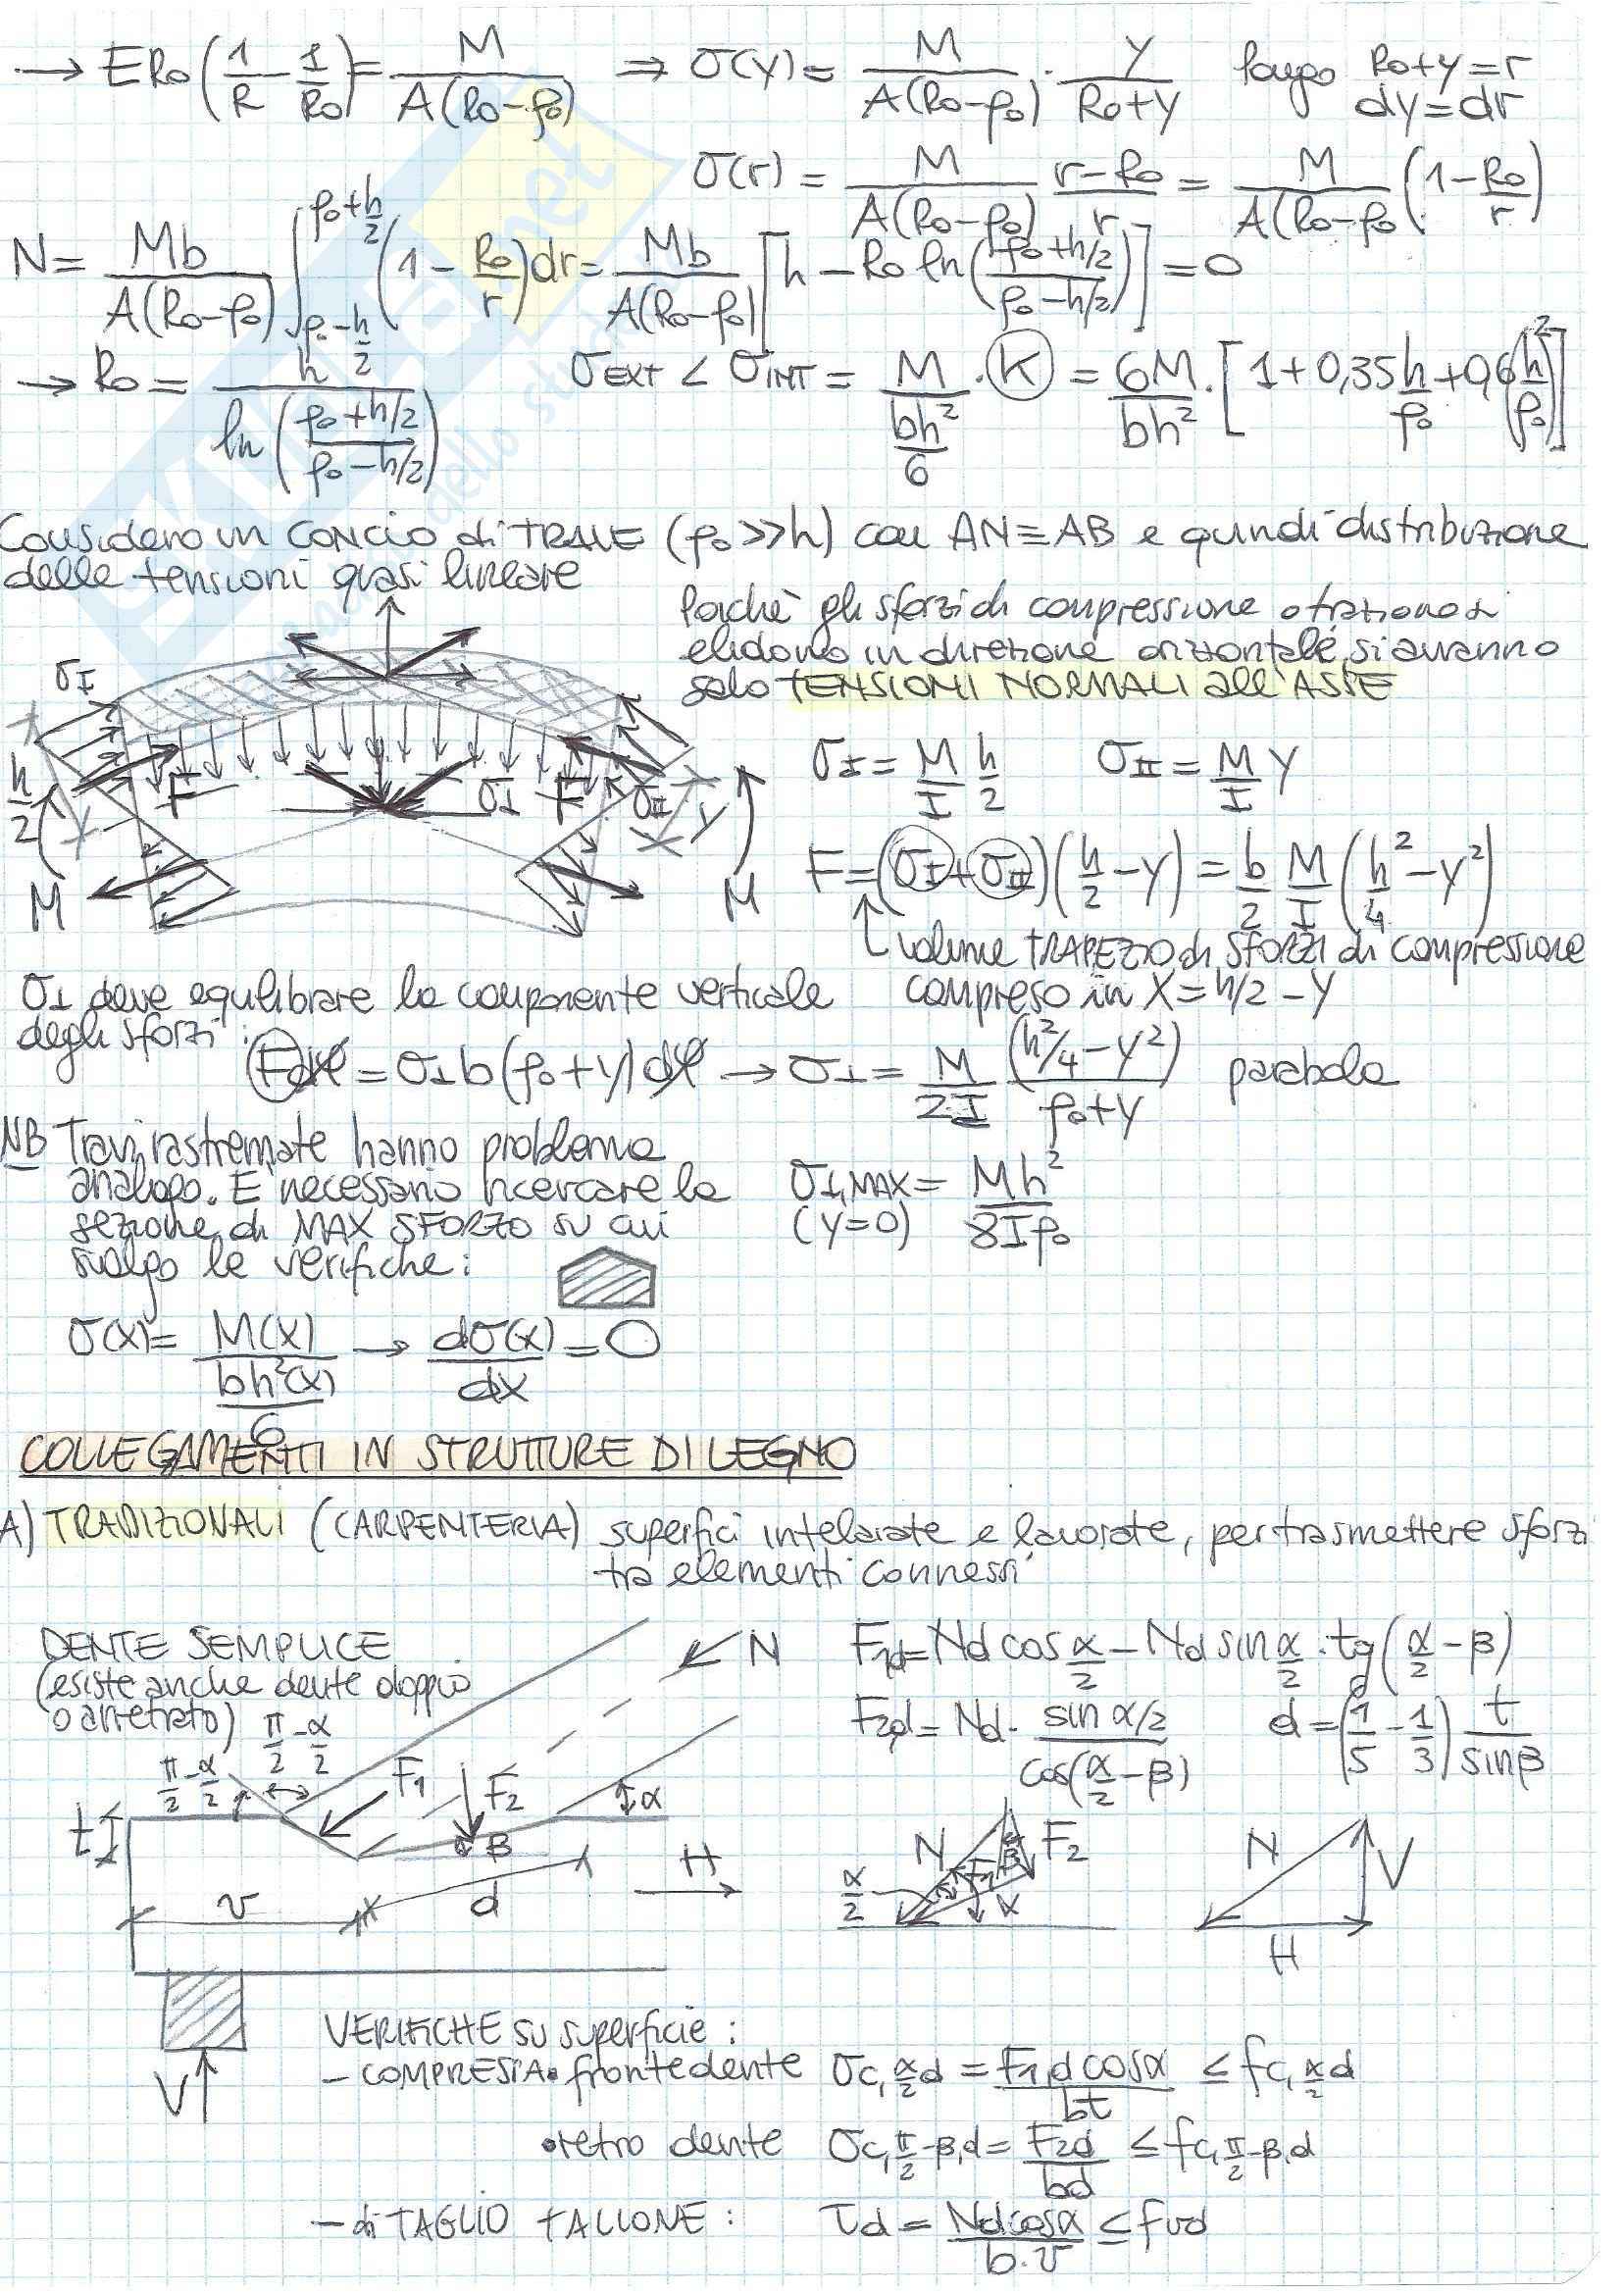 → ER₀(1/R - 1/R₀) = M/(A(R₀-ρ₀)) ⇒ σ(y) = M/(A(R₀-ρ₀)) · y/(R₀+y) pongo R₀+y=r
dy=dr
σ(r) = M/(A(R₀-ρ₀)) (r-R₀)/r = M/(A(R₀-ρ₀) (1-R₀/r)
N = Mb/(A(R₀-ρ₀)) ∫_{ρ₀-h/2}^{ρ₀+h/2} (1 - R₀/r)dr = Mb/(A(R₀-ρ₀)) [h - R₀ ln((ρ₀+h/2)/(ρ₀-h/2))] = 0
→ R₀ = h/ln((ρ₀+h/2)/(ρ₀-h/2)) σEXT < σINT = M/(bh²/6) · K = 6M/bh² · [1+0,35 h/ρ₀ + 0,6(h/ρ₀)²]
Considero un CONCIO di TRAVE (ρ₀>>h) con AN≡AB e quindi distribuzione
delle tensioni quasi lineare
Poichè gli sforzi di compressione e trazione si
elidono in direzione orizzontale, si avranno
solo TENSIONI NORMALI all'ASSE
σI h/2 F σ⊥ F σII y M M
σI = M/I h/2 σII = M/I y
F = (σI+σII)(h/2 - y) = b/2 M/I (h²/4 - y²)
↑ volume TRAPEZIO di SFORZI di compressione
compreso in X = h/2 - y
σ⊥ deve equilibrare la componente verticale
degli sforzi:
Fdφ = σ⊥ b(ρ₀+y)dφ → σ⊥ = M/2I (h²/4 - y²)/(ρ₀+y) parabola
NB Travi rastremate hanno problema
analogo. E' necessario ricercare la
sezione di MAX SFORZO su cui
svolgo le verifiche:
σ⊥,MAX = Mh²/8Iρ₀
(y=0)
σ(x) = M(x)/(bh²(x)/6) → dσ(x)/dx = 0
COLLEGAMENTI IN STRUTTURE DI LEGNO
A) TRADIZIONALI (CARPENTERIA) superfici intelaiate e lavorate, per trasmettere sforzi
tra elementi connessi
DENTE SEMPLICE
(esiste anche dente doppio
o arretrato)
π/2 - α/2
π/2 - α/2
N
F₁ F₂ α
t β H
v d
V
F1d = Nd cos α/2 - Nd sin α/2 · tg(α/2 - β)
F2d = Nd · sin α/2 / cos(α/2 - β) d = (1/5 - 1/3) t/sinβ
N F₁ β F₂ α/2 α
N V H
VERIFICHE su superficie:
- COMPRESSA • fronte dente σc,α/2 d = F1,d cosα / bt ≤ fc,α/2 d
• retro dente σc,π/2-β,d = F2d/bd ≤ fc,π/2-β,d
- di TAGLIO TALLONE: τd = Nd cosα / b·v ≤ fvd